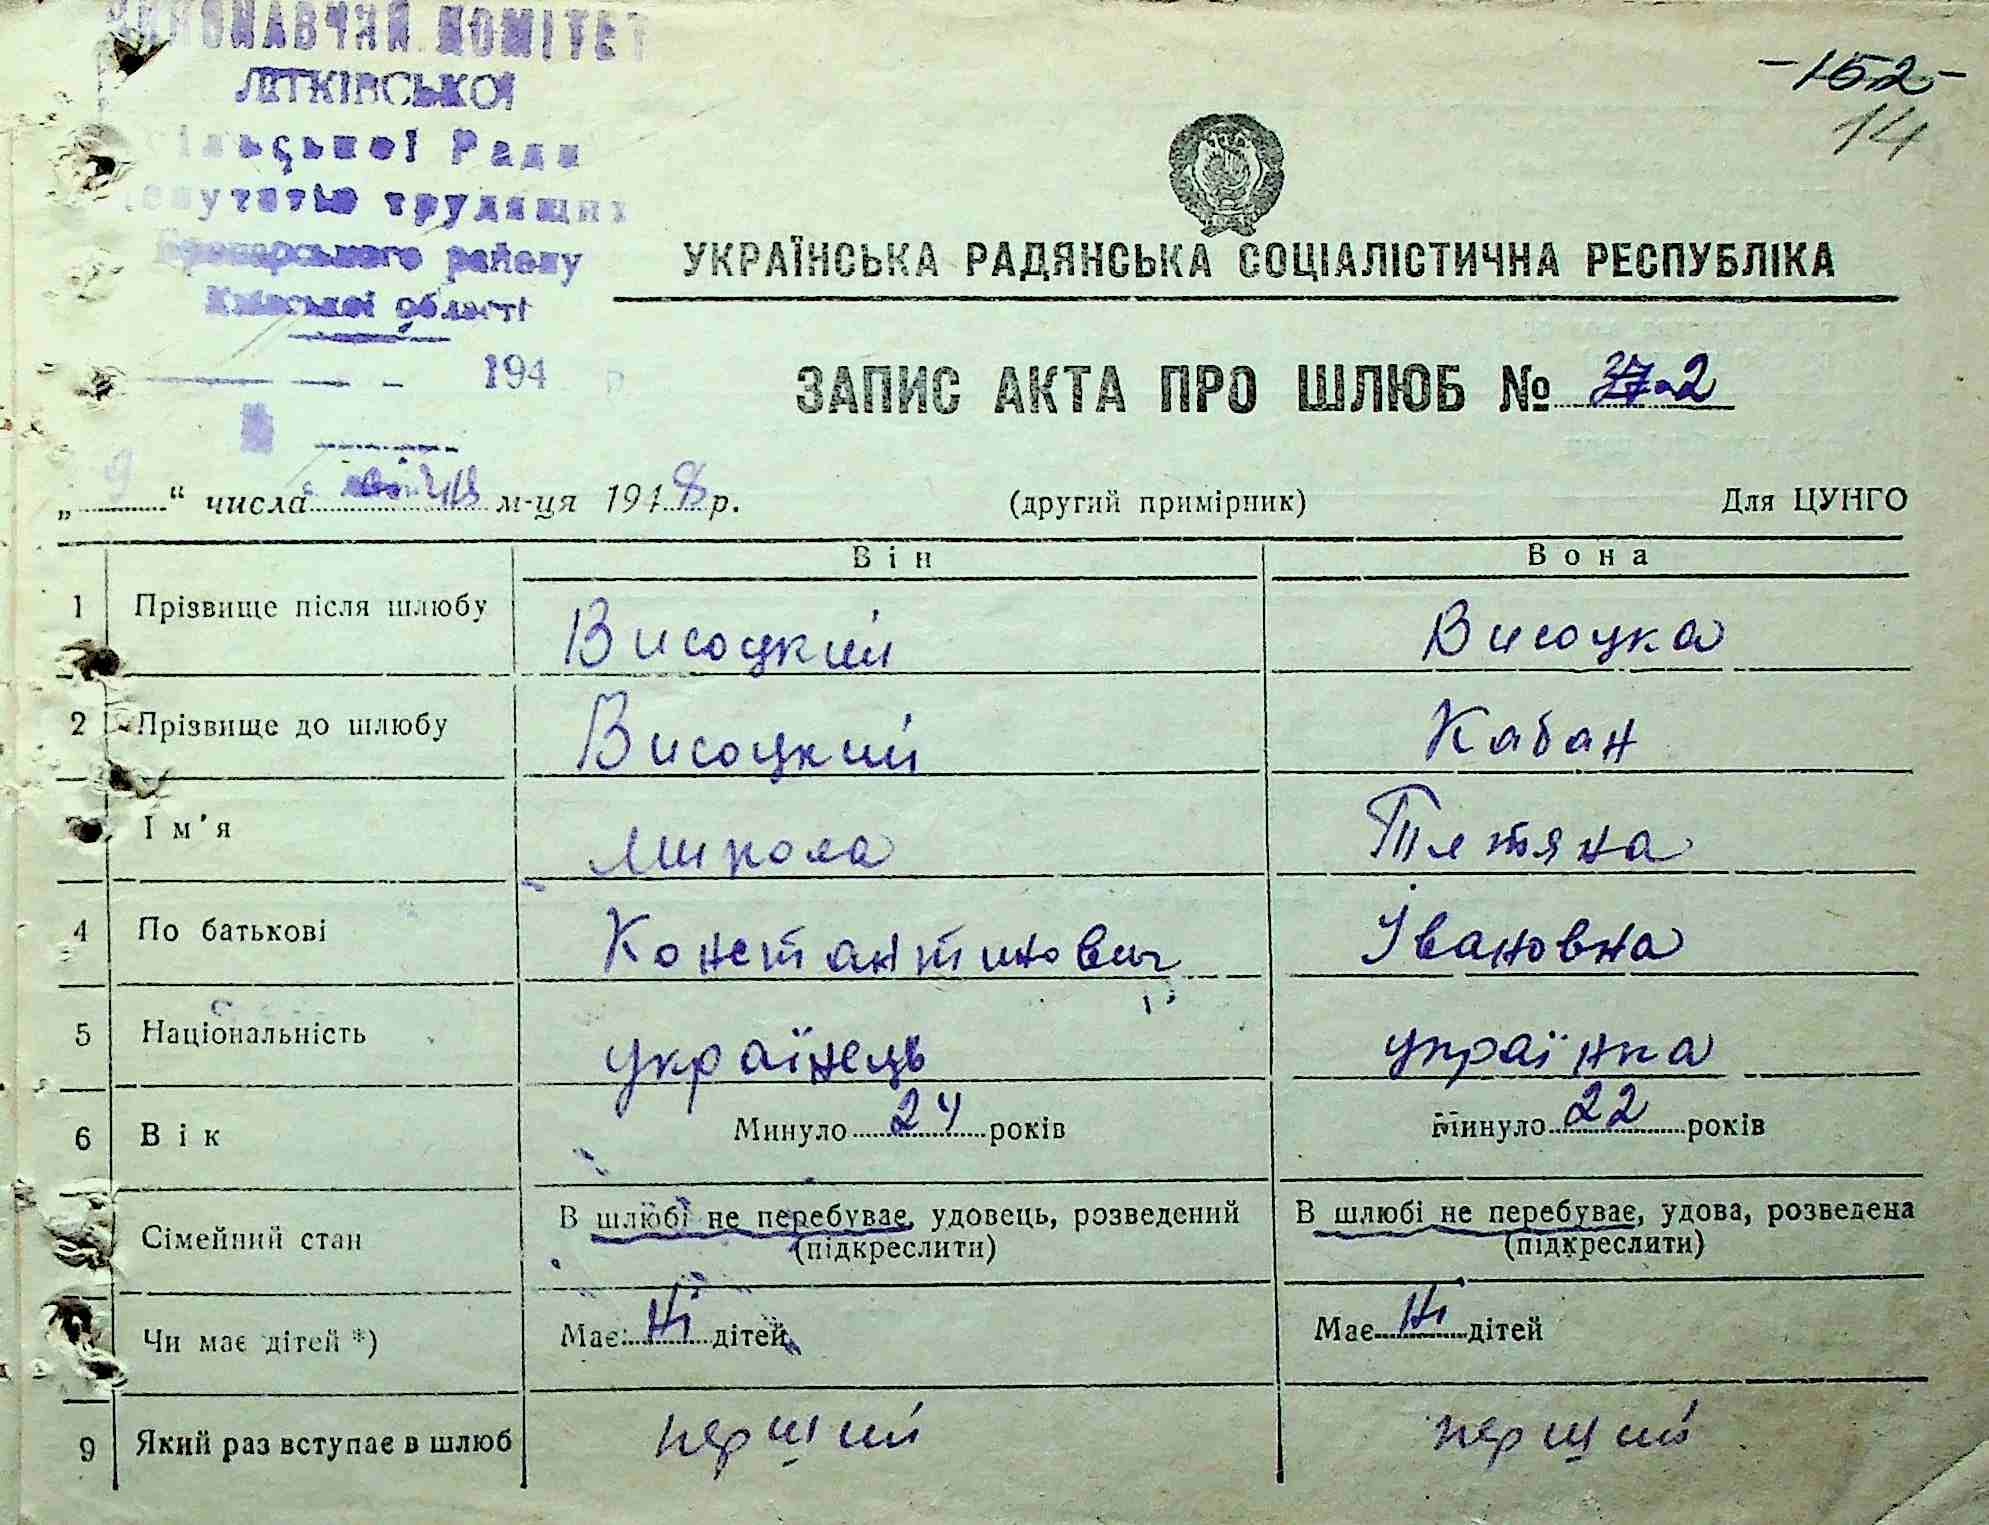 ВИКОНАВЧИЙ КОМІТЕТ
ЛІТКІВСЬКОЇ
сільської Ради
депутатів трудящих
Броварського району
Київської області
194
-152-
14
УКРАЇНСЬКА РАДЯНСЬКА СОЦІАЛІСТИЧНА РЕСПУБЛІКА
ЗАПИС АКТА ПРО ШЛЮБ № 2
„ 9 “ числа січня м-ця 1948 р. (другий примірник) Для ЦУНГО
Він Вона
1 Прізвище після шлюбу Висоцкий Висоцка
2 Прізвище до шлюбу Висоцкий Кабан
3 Ім'я Микола Тетяна
4 По батькові Константинович Івановна
5 Національність українець українка
6 Вік Минуло 24 років Минуло 22 років
Сімейний стан В шлюбі не перебуває, удовець, розведений В шлюбі не перебуває, удова, розведена
(підкреслити) (підкреслити)
Чи має дітей *) Має ні дітей Має ні дітей
9 Який раз вступає в шлюб перший перший